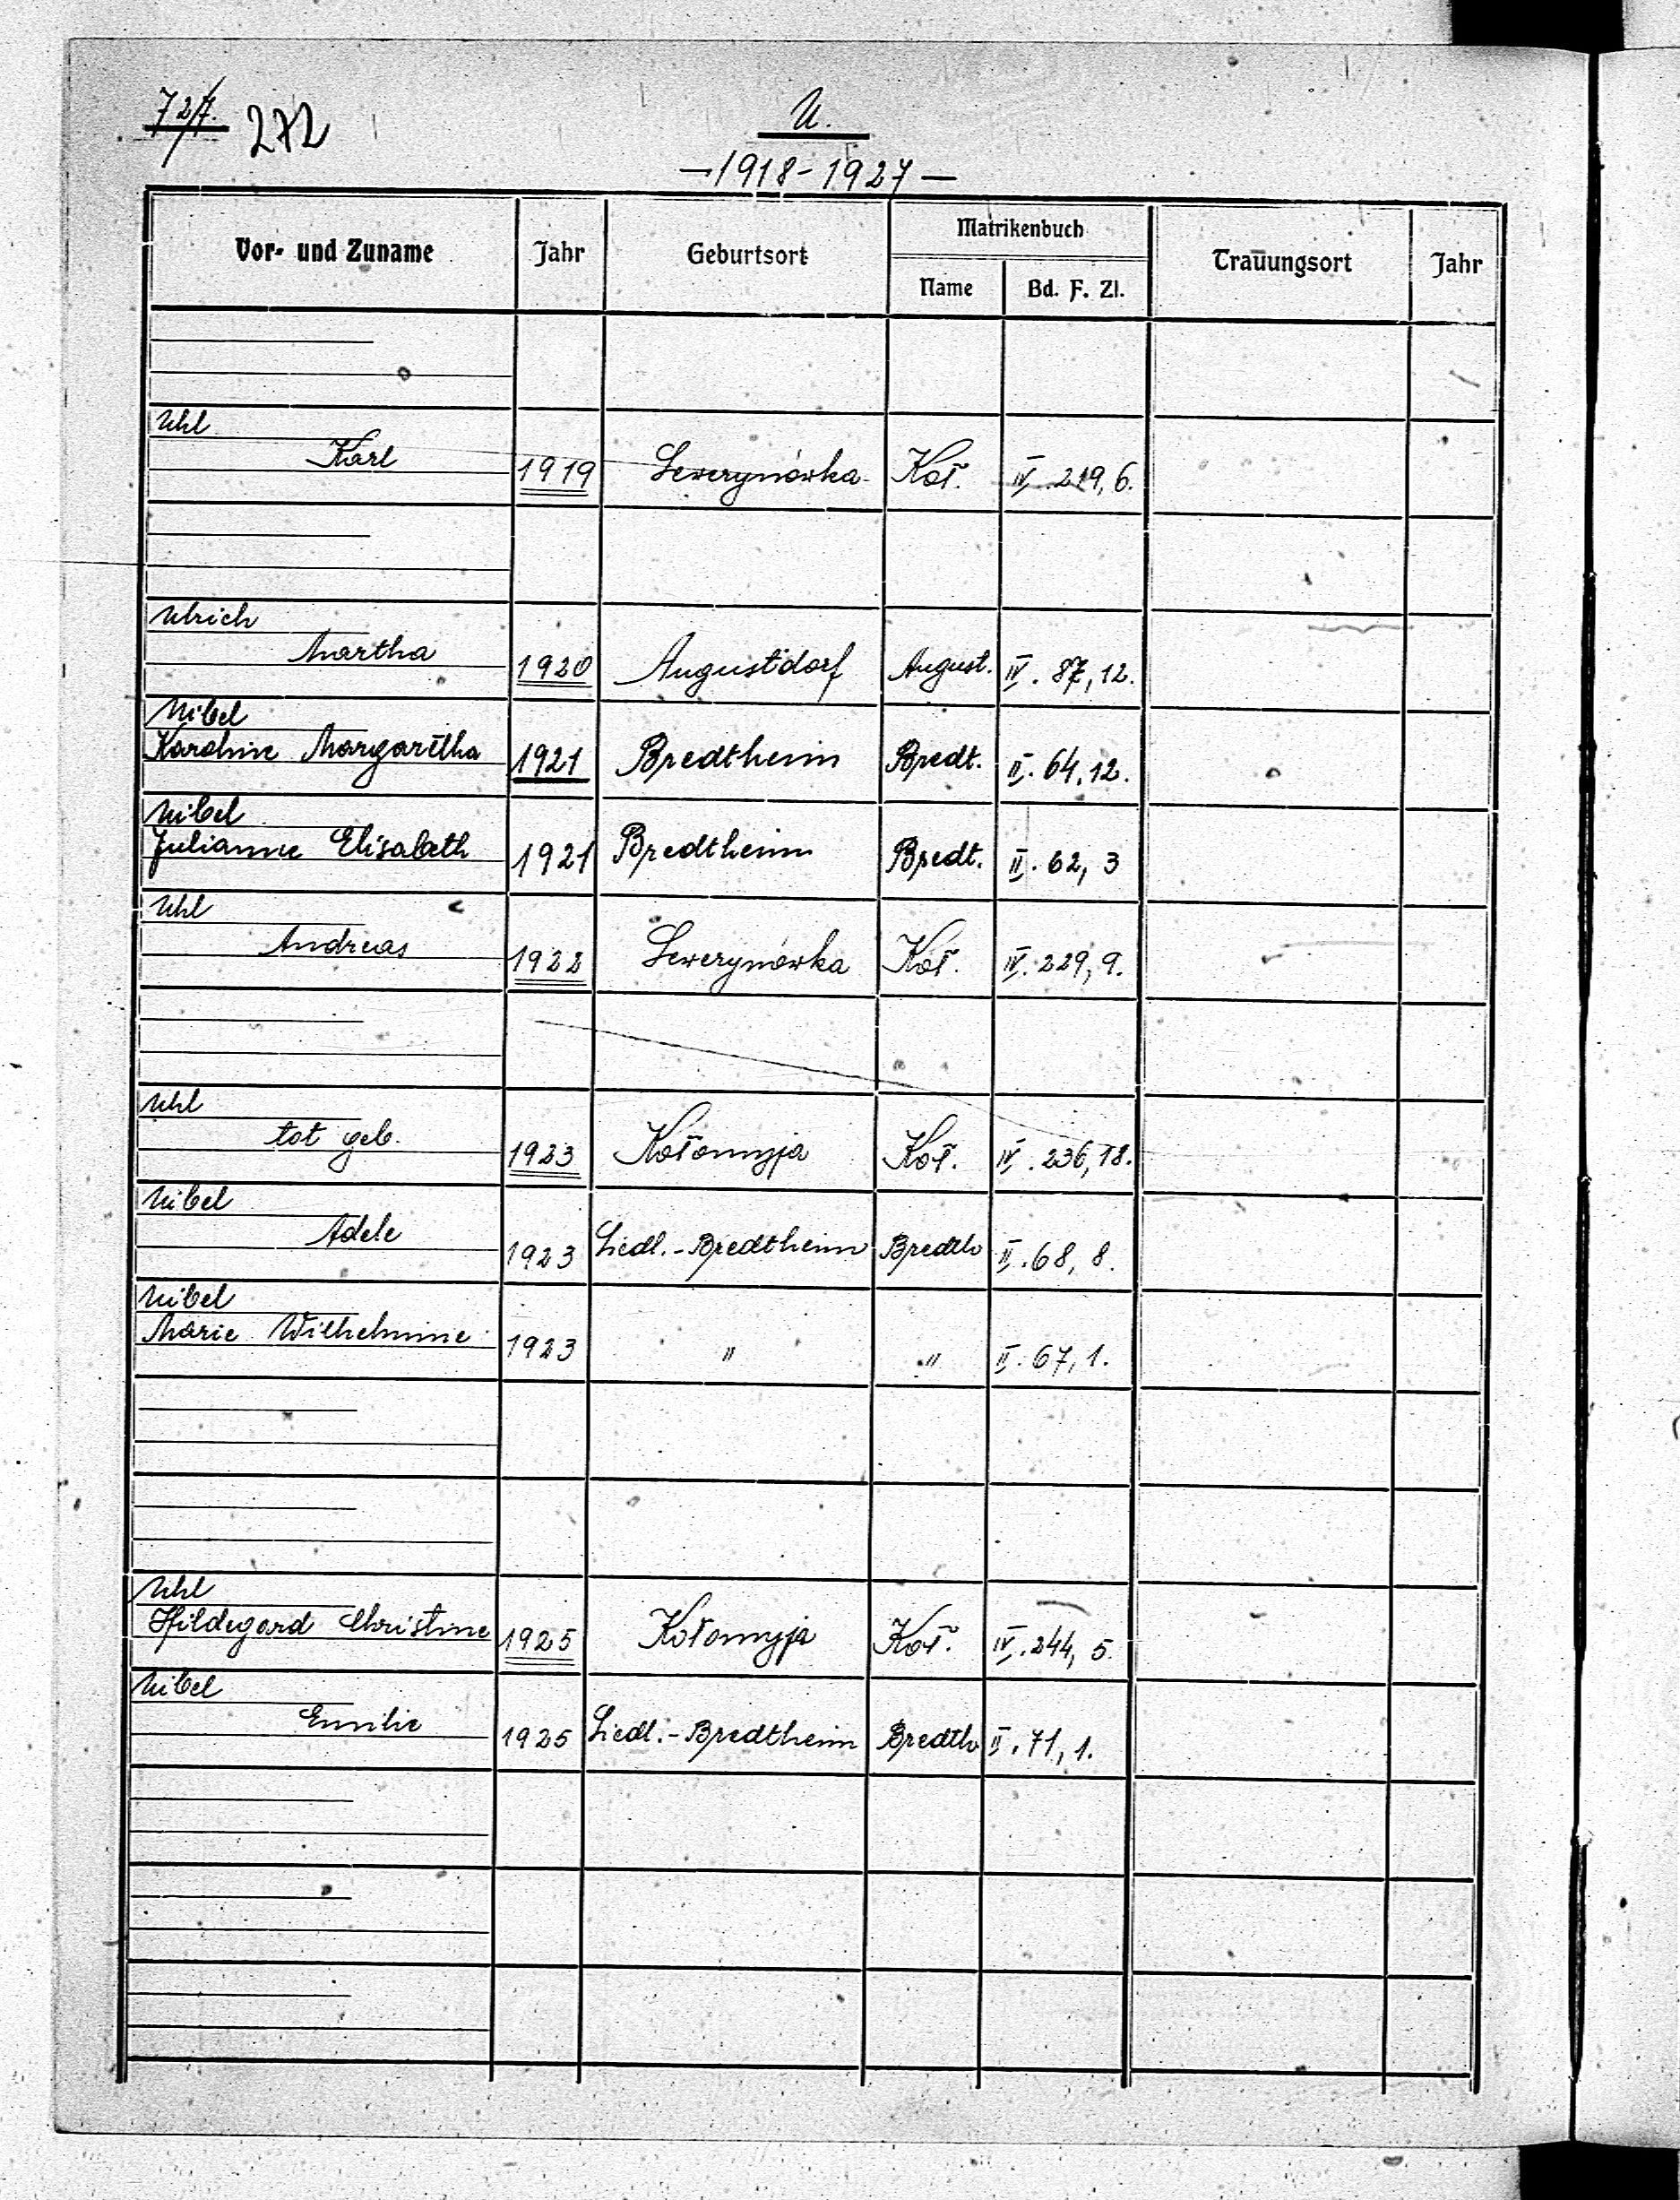 727. 272
U.
-1918-1927-
Vor- und Zuname Jahr Geburtsort Matrikenbuch Trauungsort Jahr
Name Bd. F. Zl.
Uhl
Karl 1919 Sewerynówka Koł. IV. 219, 6.
Ulrich
Martha 1920 Augustdorf August. IV. 87, 12.
Uibel
Karoline Margaretha 1921 Bredtheim Bredt. II. 64, 12.
Uibel
Julianne Elisabeth 1921 Bredtheim Bredt. II. 62, 3
Uhl
Andreas 1922 Sewerynówka Koł. IV. 229, 9.
Uhl
tot geb. 1923 Kołomyja Koł. IV. 236, 18.
Uibel
Adele 1923 Siedl.-Bredtheim Bredth II. 68, 8.
Uibel
Marie Wilhelmine 1923 " " II. 67, 1.
Uhl
Hildegard Christine 1925 Kołomyja Koł. IV. 244, 5.
Uibel
Emilie 1925 Siedl.-Bredtheim Bredth II. 71, 1.